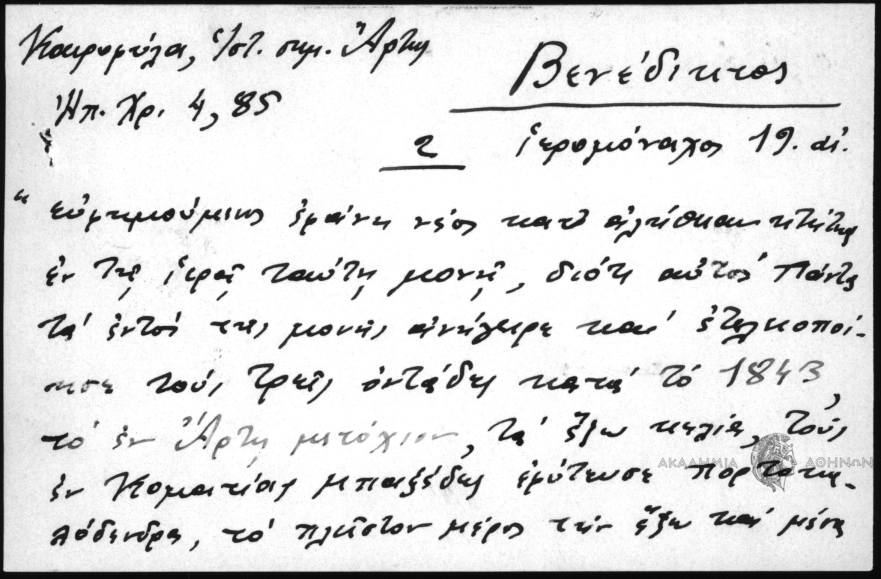 Καιρομύλα, Ἱστ. σημ. Ἄρτης
Ἠπ. Χρ. 4, 85
Βενέδικτος
2
ἱερομόναχος 19. αἰ.
" εὐφημούμενος ἐφάνη νέος κατ' ἀλήθειαν κτήτης
ἐν τῇ ἱερᾷ ταύτῃ μονῇ, διότι αὐτὸς πάντα
τὰ ἐντὸς τῆς μονῆς ἀνήγειρε καὶ ἐτελειοποί-
ησε τοὺς τρεῖς ὀντάδες κατὰ τὸ 1843,
τὸ ἐν Ἄρτῃ μετόχιον, τὰ ἔξω κελία, τοὺς
ἐν Κομποτίῳ μπαξέδες ἐφύτευσε πορτοκα-
λόδενδρα, τὸ πλεῖστον μέρος τῶν ἔξω καὶ μέσα
ΑΚΑΔΗΜΙΑ ΑΘΗΝΩΝ